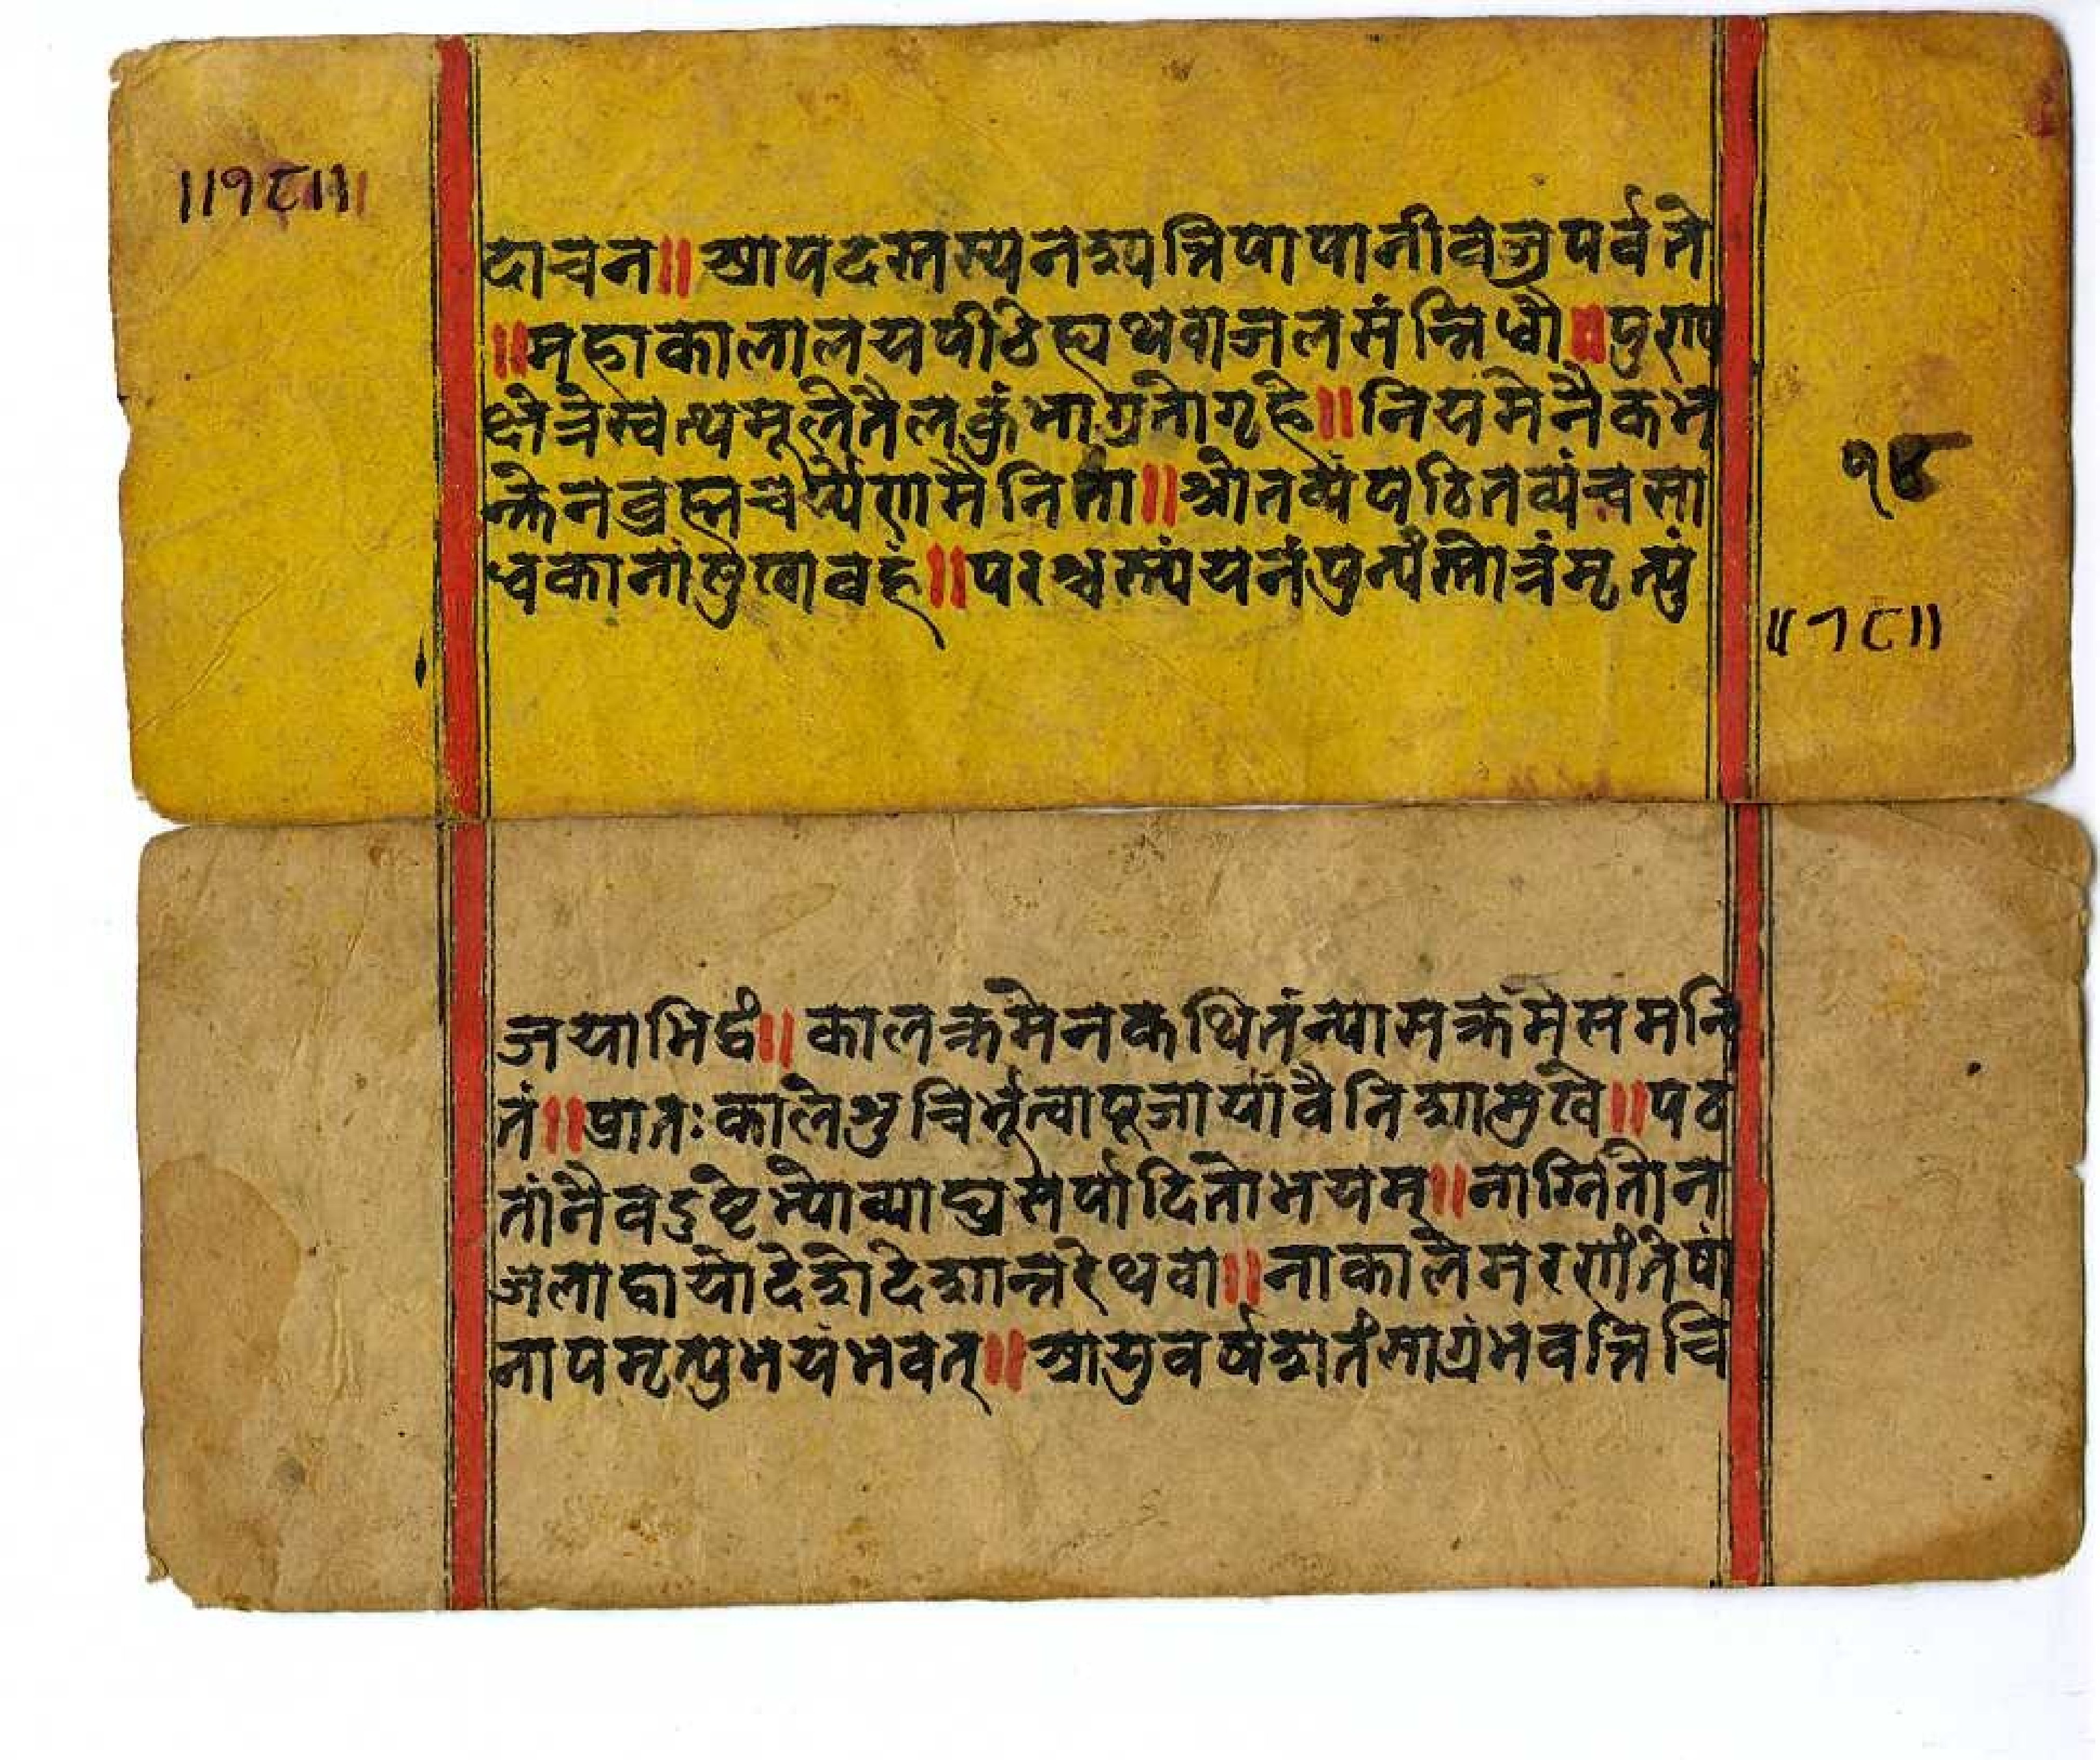 ॥१८॥
दाचन॥ आपदस्तस्यनश्यन्तिपापानीवज्रपर्वते
॥महाकालालयपीठेह्यथवाजलसंन्निधौ॥पुराण
क्षेत्रेस्वत्थमूलेतैलकुंभाग्रतोगृहे॥नियमेनैकभ
क्तेनब्रह्मचर्य्येणामैनिता॥श्रोतव्यंपठितव्यंचसा
धकानांसुखावहं॥परश्वस्त्ययनंपुन्यंस्तोत्रंमृत्युं
१८
॥१८॥
जयाभिद्धं॥कालक्रमेनकथितंन्यासक्रमेसमन्वि
तं॥प्रातःकालेशुचिर्भूत्वापूजायांवैनिशामुखे॥पठ
तांनैवदुष्टेभ्योव्याघ्रसर्पादितोभयम्॥नाग्नितोन
जलाद्वायोदेशेदेशान्तरेथवा॥नाकालेमरणंतेषां
नापमृत्युभयंभवत्॥आयुवर्षशतंसाग्रंभवन्तिचि